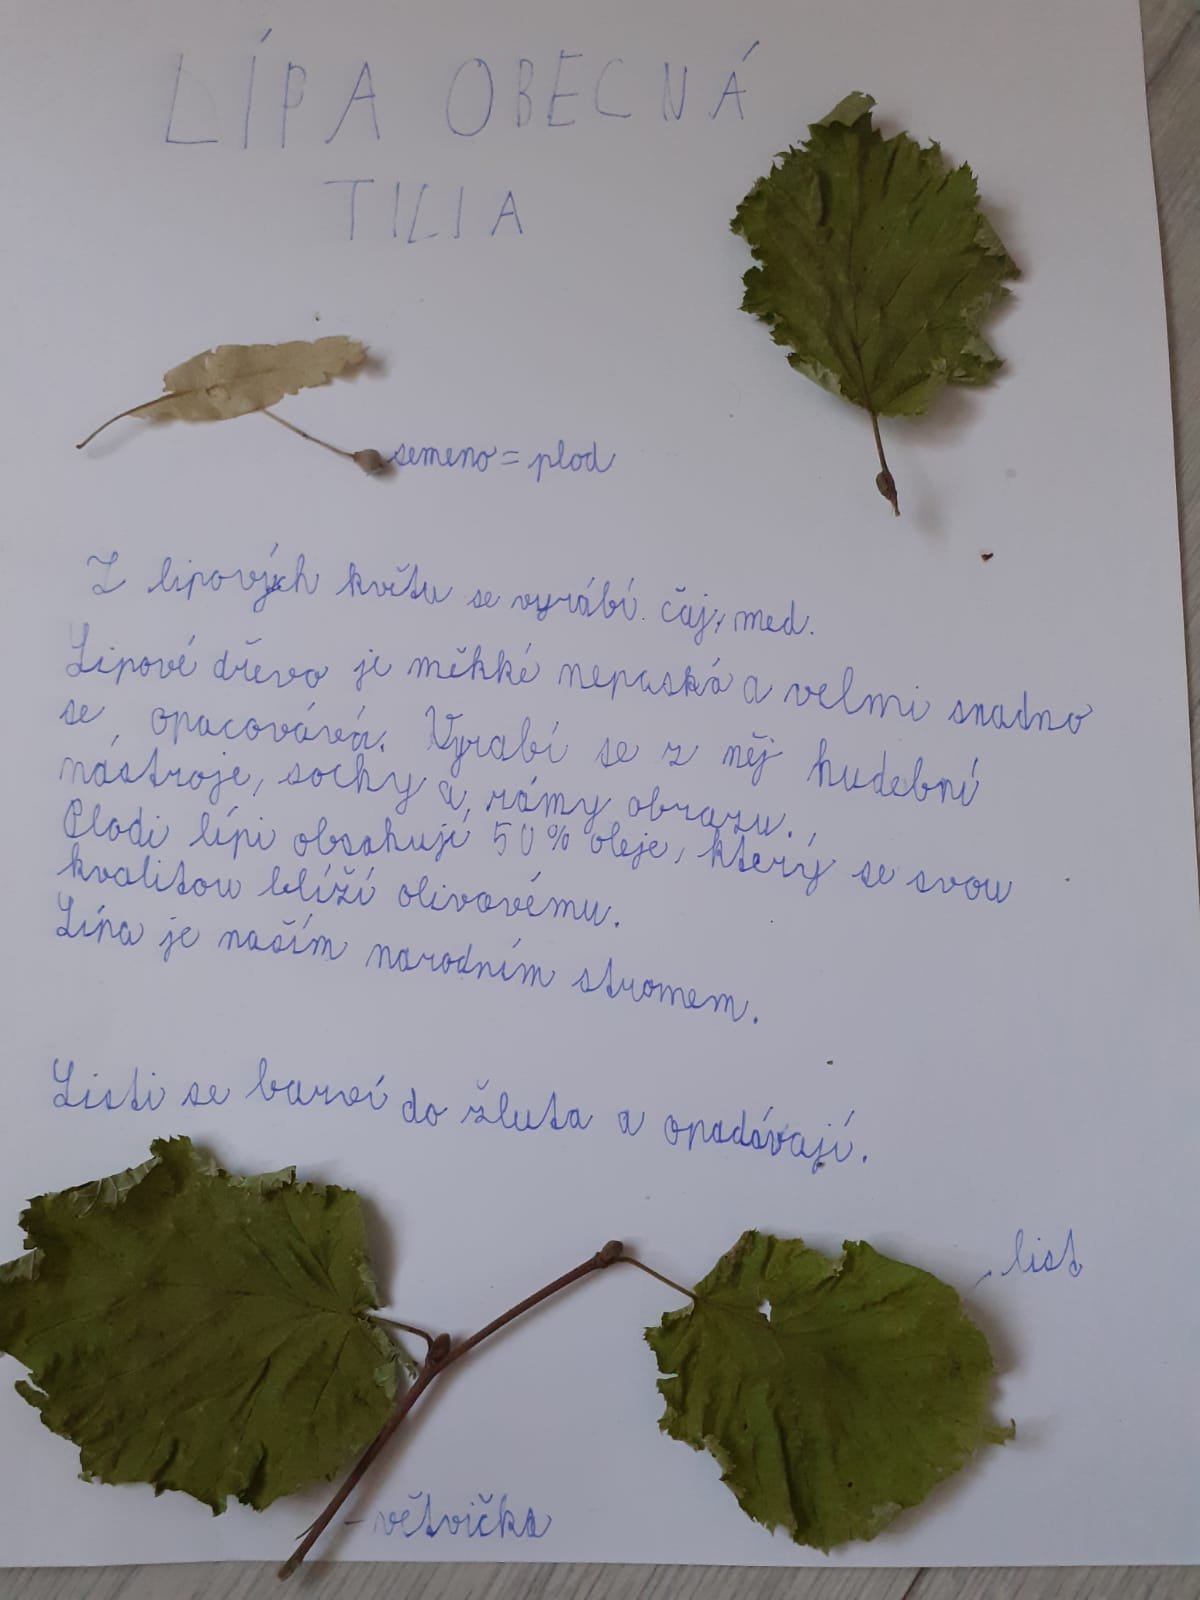 LÍPA OBECNÁ
TILIA
semeno = plod
Z lipových květu se vyrábí čaj, med.
Lipové dřevo je měkké nepraská a velmi snadno
se opacovává. Vyrabí se z něj hudební
nástroje, sochy a rámy obrazu.
Plodi lípi obsahují 50% oleje, který se svou
kvalitou blíží olivovému.
Lípa je naším narodním stromem.
Listi se barví do žluta a opadávají.
list
- větvička